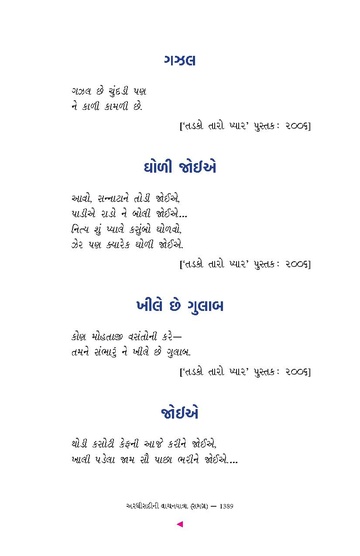 ગઝલ
ગઝલ છે ચુંદડી પણ
ને કાળી કામળી છે.
['તડકો તારો પ્યાર' પુસ્તક: ૨૦૦૬]
ઘોળી જોઈએ
આવો, સન્નાટાને તોડી જોઈએ,
પાડીએ રાડો ને બોલી જોઈએ...
નિત્ય શું પ્યાલે કસુંબો ઘોળવો,
ઝેર પણ ક્યારેક ઘોળી જોઈએ.
['તડકો તારો પ્યાર' પુસ્તક: ૨૦૦૬]
ખીલે છે ગુલાબ
કોણ મોહતાજી વસંતોની કરે—
તમને સંભારું ને ખીલે છે ગુલાબ.
['તડકો તારો પ્યાર' પુસ્તક: ૨૦૦૬]
જોઈએ
થોડી કસોટી કેફની આજે કરીને જોઈએ,
ખાલી પડેલા જામ સૌ પાછા ભરીને જોઈએ....
અરધીસદીની વાચનયાત્રા (સમગ્ર) — 1389